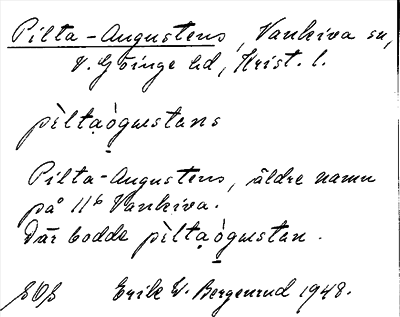 Pilta-Augustens, Vankiva sn,
V. Göinge hd, Krist. l.
pìltạò̱gustans
Pilta-Augustens, äldre namn
på 11ᵇ Vankiva.
Där bodde pìltạò̱gustan.
Erik W. Bergenrud 1948.